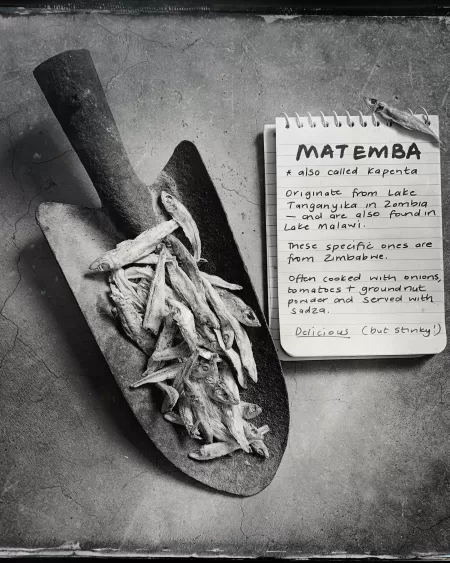 MATEMBA
* also called Kapenta
Originate from Lake
Tanganyika in Zambia
– and are also found in
Lake Malawi.
These specific ones are
from Zimbabwe.
Often cooked with onions,
tomatoes + groundnut
powder and served with
sadza.
Delicious (but stinky!)